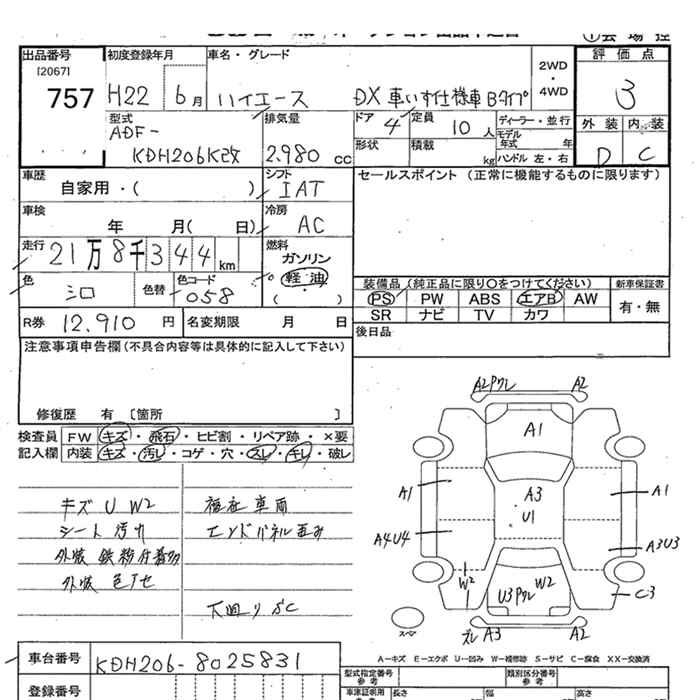 出品番号 初度登録年月 車名・グレード 2WD・4WD 評価点
[2067]
757 H22 6月 ハイエース DX 車いす仕様車 Bタイプ 3
型式 排気量 ドア 定員 ディーラー・並行 外装 内装
ADF- 4 10人 モデル年式 年 D C
KDH206K改 2.980 cc 形状 積載 kg ハンドル 左・右
車歴 シフト セールスポイント (正常に機能するものに限ります)
自家用・( ) IAT
車検 冷房
年 月( 日) AC
走行 燃料
21万8千344km ガソリン
色 色替 色コード 軽油
シロ 058 ( )
装備品 (純正品に限り○をつけてください) 新車保証書
PS PW ABS エアB AW 有・無
SR ナビ TV カワ
R券 12.910 円 名変期限 月 日 後日品
注意事項申告欄(不具合内容等は具体的に記入して下さい)
修復歴 有 [箇所 ]
検査員 FW キズ・飛石・ヒビ割・リペア跡・×要
記入欄 内装 キズ・汚レ・コゲ・穴・スレ・キレ・破レ
キズ U W2 福祉車両
シート汚れ エンドパネル歪み
外装 鉄粉付着多
外装 色アセ
下回り SC
A2 ワレ A2
A1
A1 A3 A1
U1
A4U4 A3U3
W2 U3 ワレ W2 C3
スペア ズレ A3 A2
A-キズ E-エクボ U-凹み W-補修跡 S-サビ C-腐食 XX-交換済
車台番号 KDH206-8025831
登録番号
型式指定番号 参考 類別区分番号 参考
長さ 幅 高さ